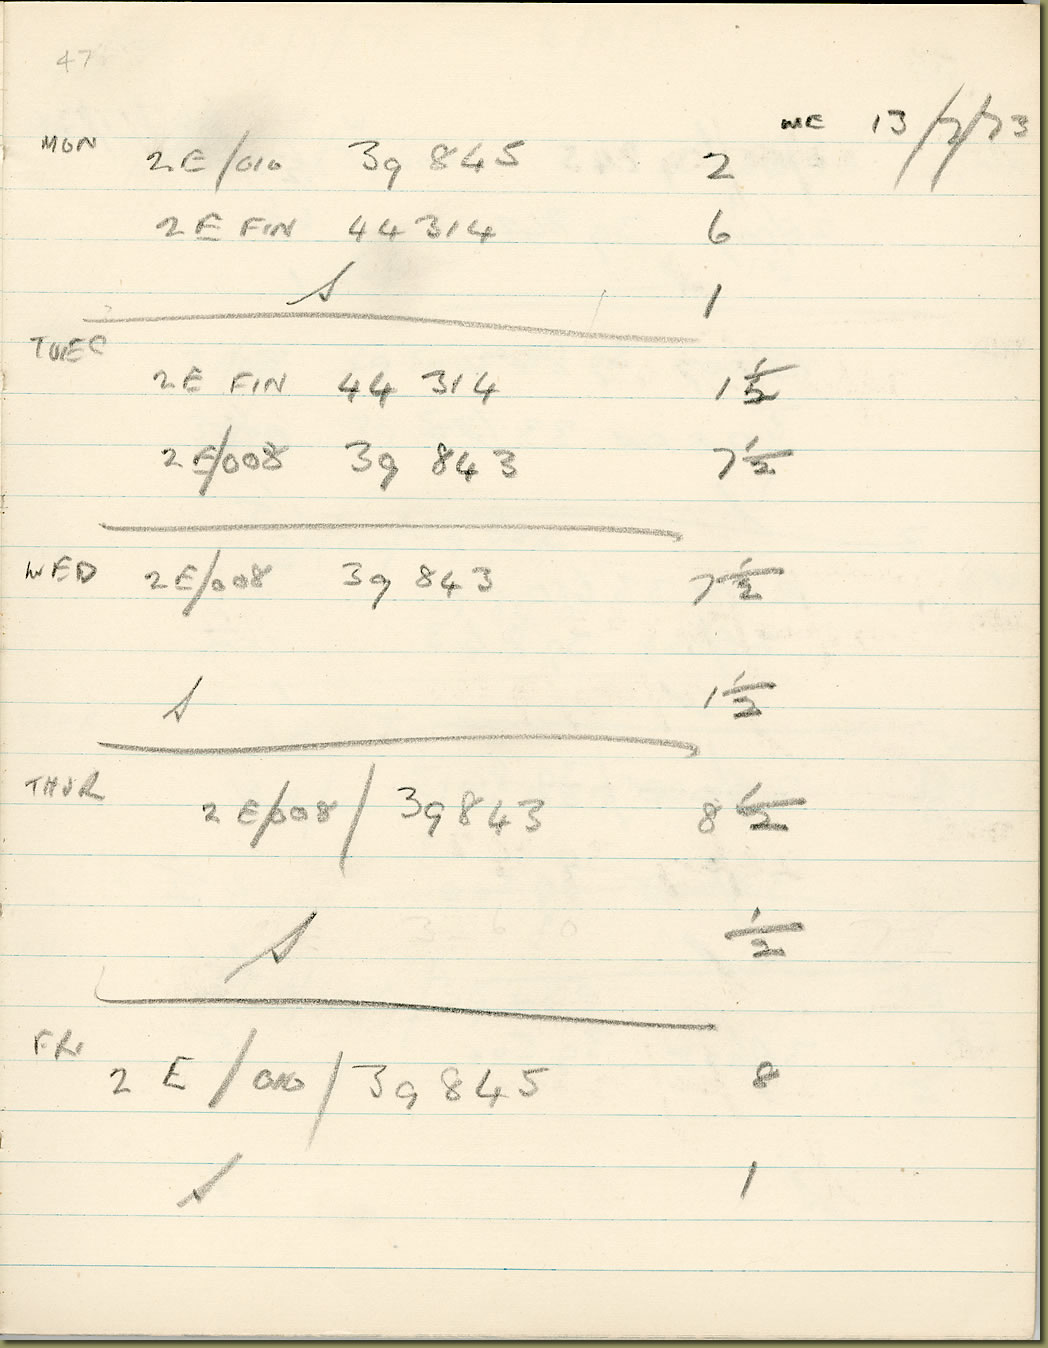 47
ME 13/7/73
MON 2E/010 39 845 2
2E FIN 44314 6
S 1
TUES
2E FIN 44 314 1 1/2
2E/008 39 843 7 1/2
WED 2E/008 39 843 7 1/2
S 1 1/2
THUR
2E/008/ 39843 8 1/2
S 1/2
FRI
2 E/010/39845 8
S 1